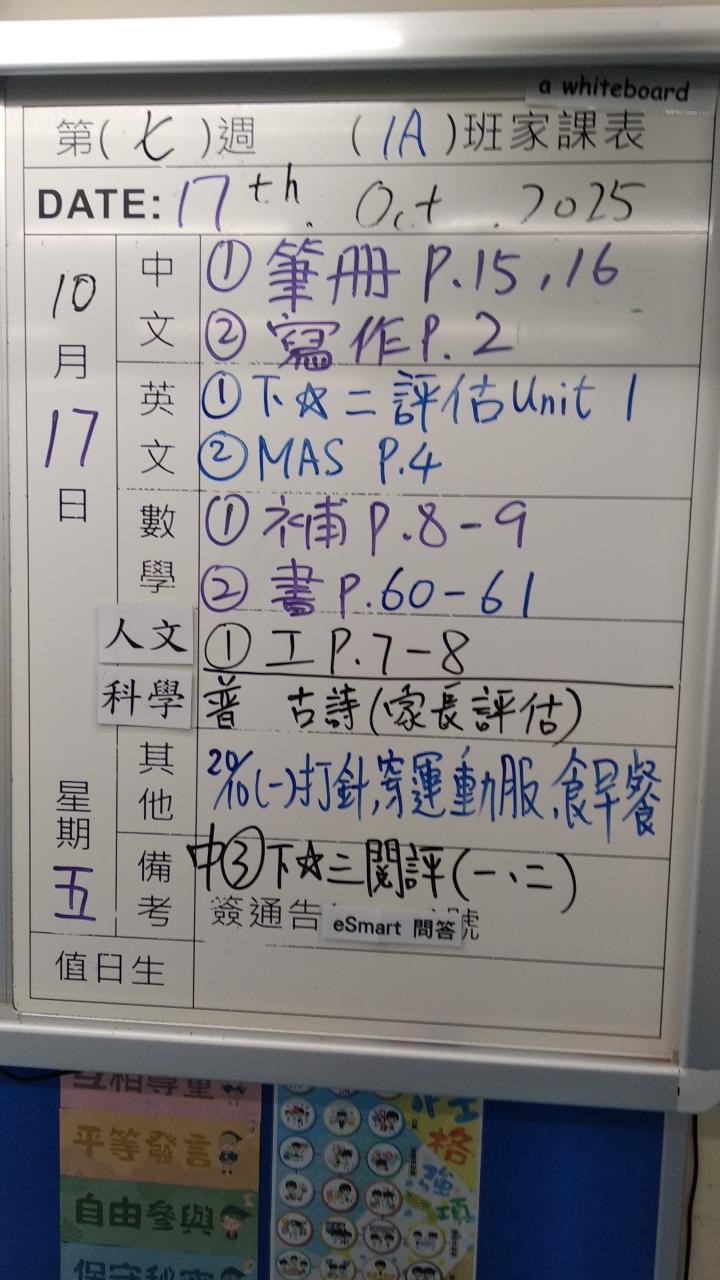 a whiteboard
第(七)週 (1A)班家課表
DATE: 17th. Oct. 2025
10月17日
星期五
中文
① 筆冊 P.15,16
② 寫作P.2
英文
① 下☆二評估Unit 1
② MAS P.4
數學
① 補 P.8-9
② 書 P.60-61
人文
① 工P.7-8
科學
普 古詩(家長評估)
其他
20/10(一)打針,穿運動服,食早餐
備考
中③下☆三閱評(一、二)
簽通告 號
eSmart 問答
值日生
互相尊重
平等發言
自由參與
保守秘密
格
強
項